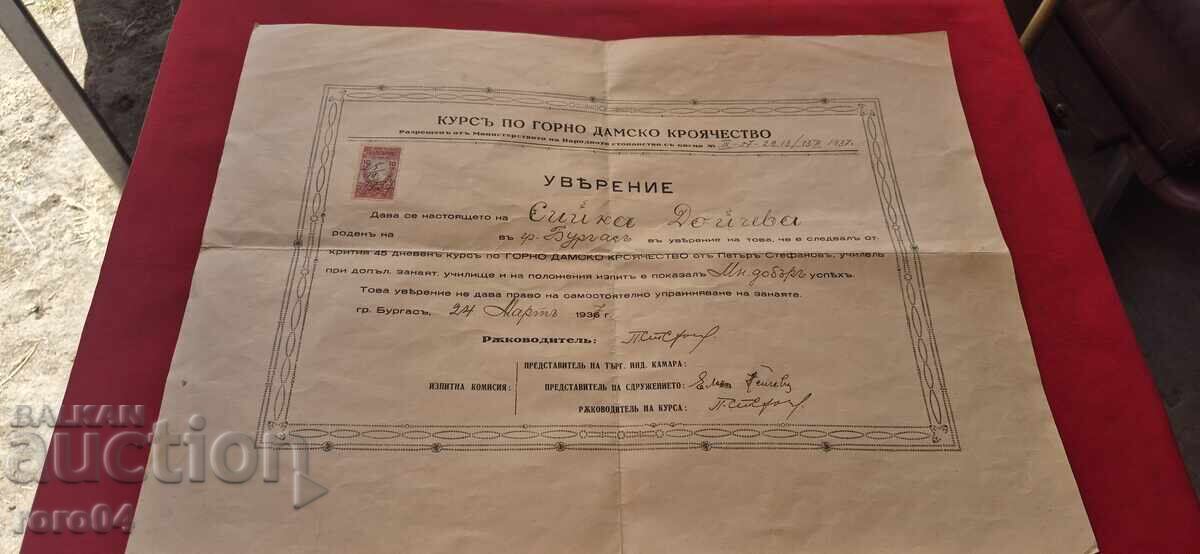 КУРСЪ ПО ГОРНО ДАМСКО КРОЯЧЕСТВО
Разрешенъ отъ Министерството на Народното стопанство съ писмо № 1937 г.
10 10
УВѢРЕНИЕ
Дава се настоящето на Сийка Дойчева
роденъ на въ гр. Бургасъ въ уверение на това, че е следвалъ от-
крития 45 дневенъ курсъ по ГОРНО ДАМСКО КРОЯЧЕСТВО отъ Петъръ Стефановъ, училель
при допъл. занаят. училище и на положения изпитъ е показалъ Мн. добъръ успѣхъ.
Това уверение не дава право на самостоятелно упражняване на занаята.
гр. Бургасъ, 24 Мартъ 1937 г.
Рѫководитель:
ПРЕДСТАВИТЕЛЬ НА ТЪРГ. ИНД. КАМАРА:
ИЗПИТНА КОМИСИЯ: ПРЕДСТАВИТЕЛЬ НА СДРУЖЕНИЕТО:
РѪКОВОДИТЕЛЬ НА КУРСА:
BALKAN
auction
joro04